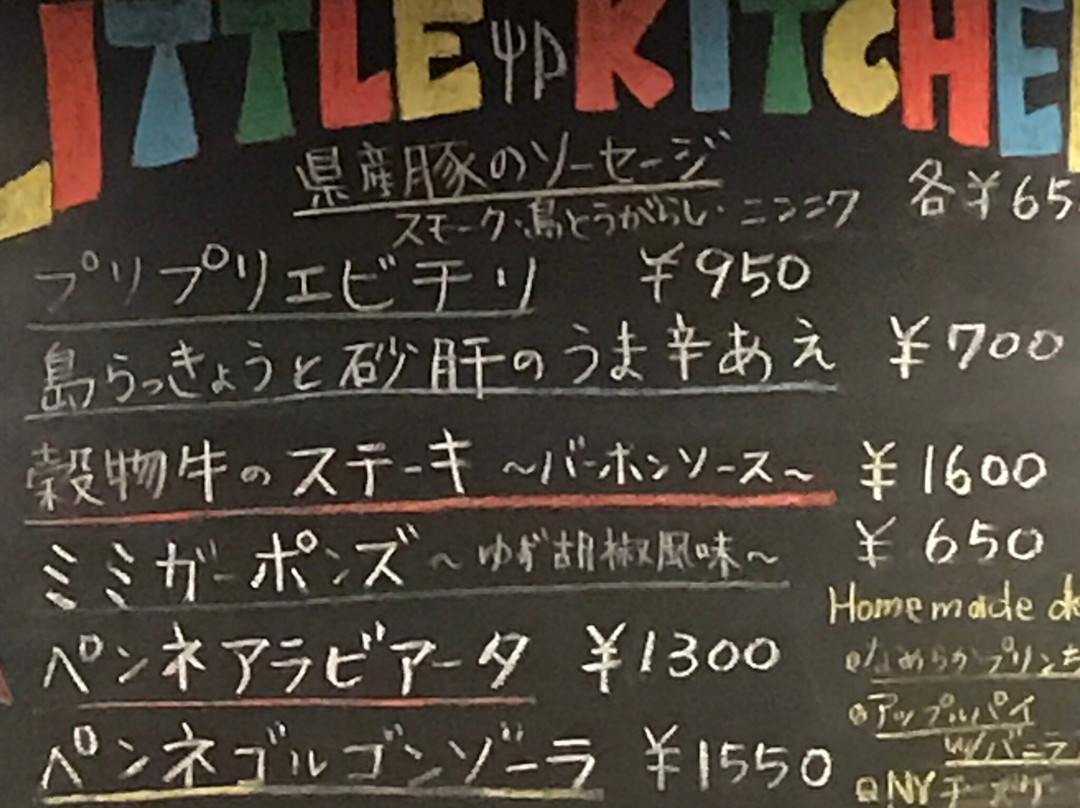 LITTLE KITCHE
県産豚のソーセージ
スモーク・島とうがらし・ニンニク 各¥65
プリプリエビチリ ¥950
島らっきょうと砂肝のうま辛あえ ¥700
穀物牛のステーキ ～バーボンソース～ ¥1600
ミミガーポンズ ～ゆず胡椒風味～ ¥650
ペンネアラビアータ ¥1300
ペンネゴルゴンゾーラ ¥1550
Homemade
なめらかプリン
アップルパイ
w/バニラ
NYチーズケ